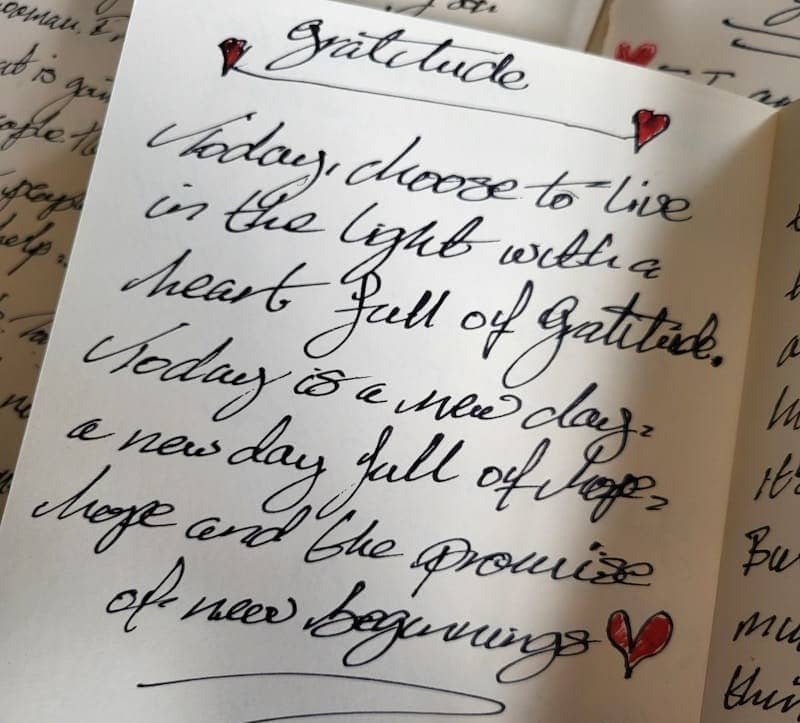 gratitude
Today, choose to live
in the light with a
heart full of Gratitude.
Today is a new day,
a new day full of hope,
hope and the promise
of new beginnings
help.
But